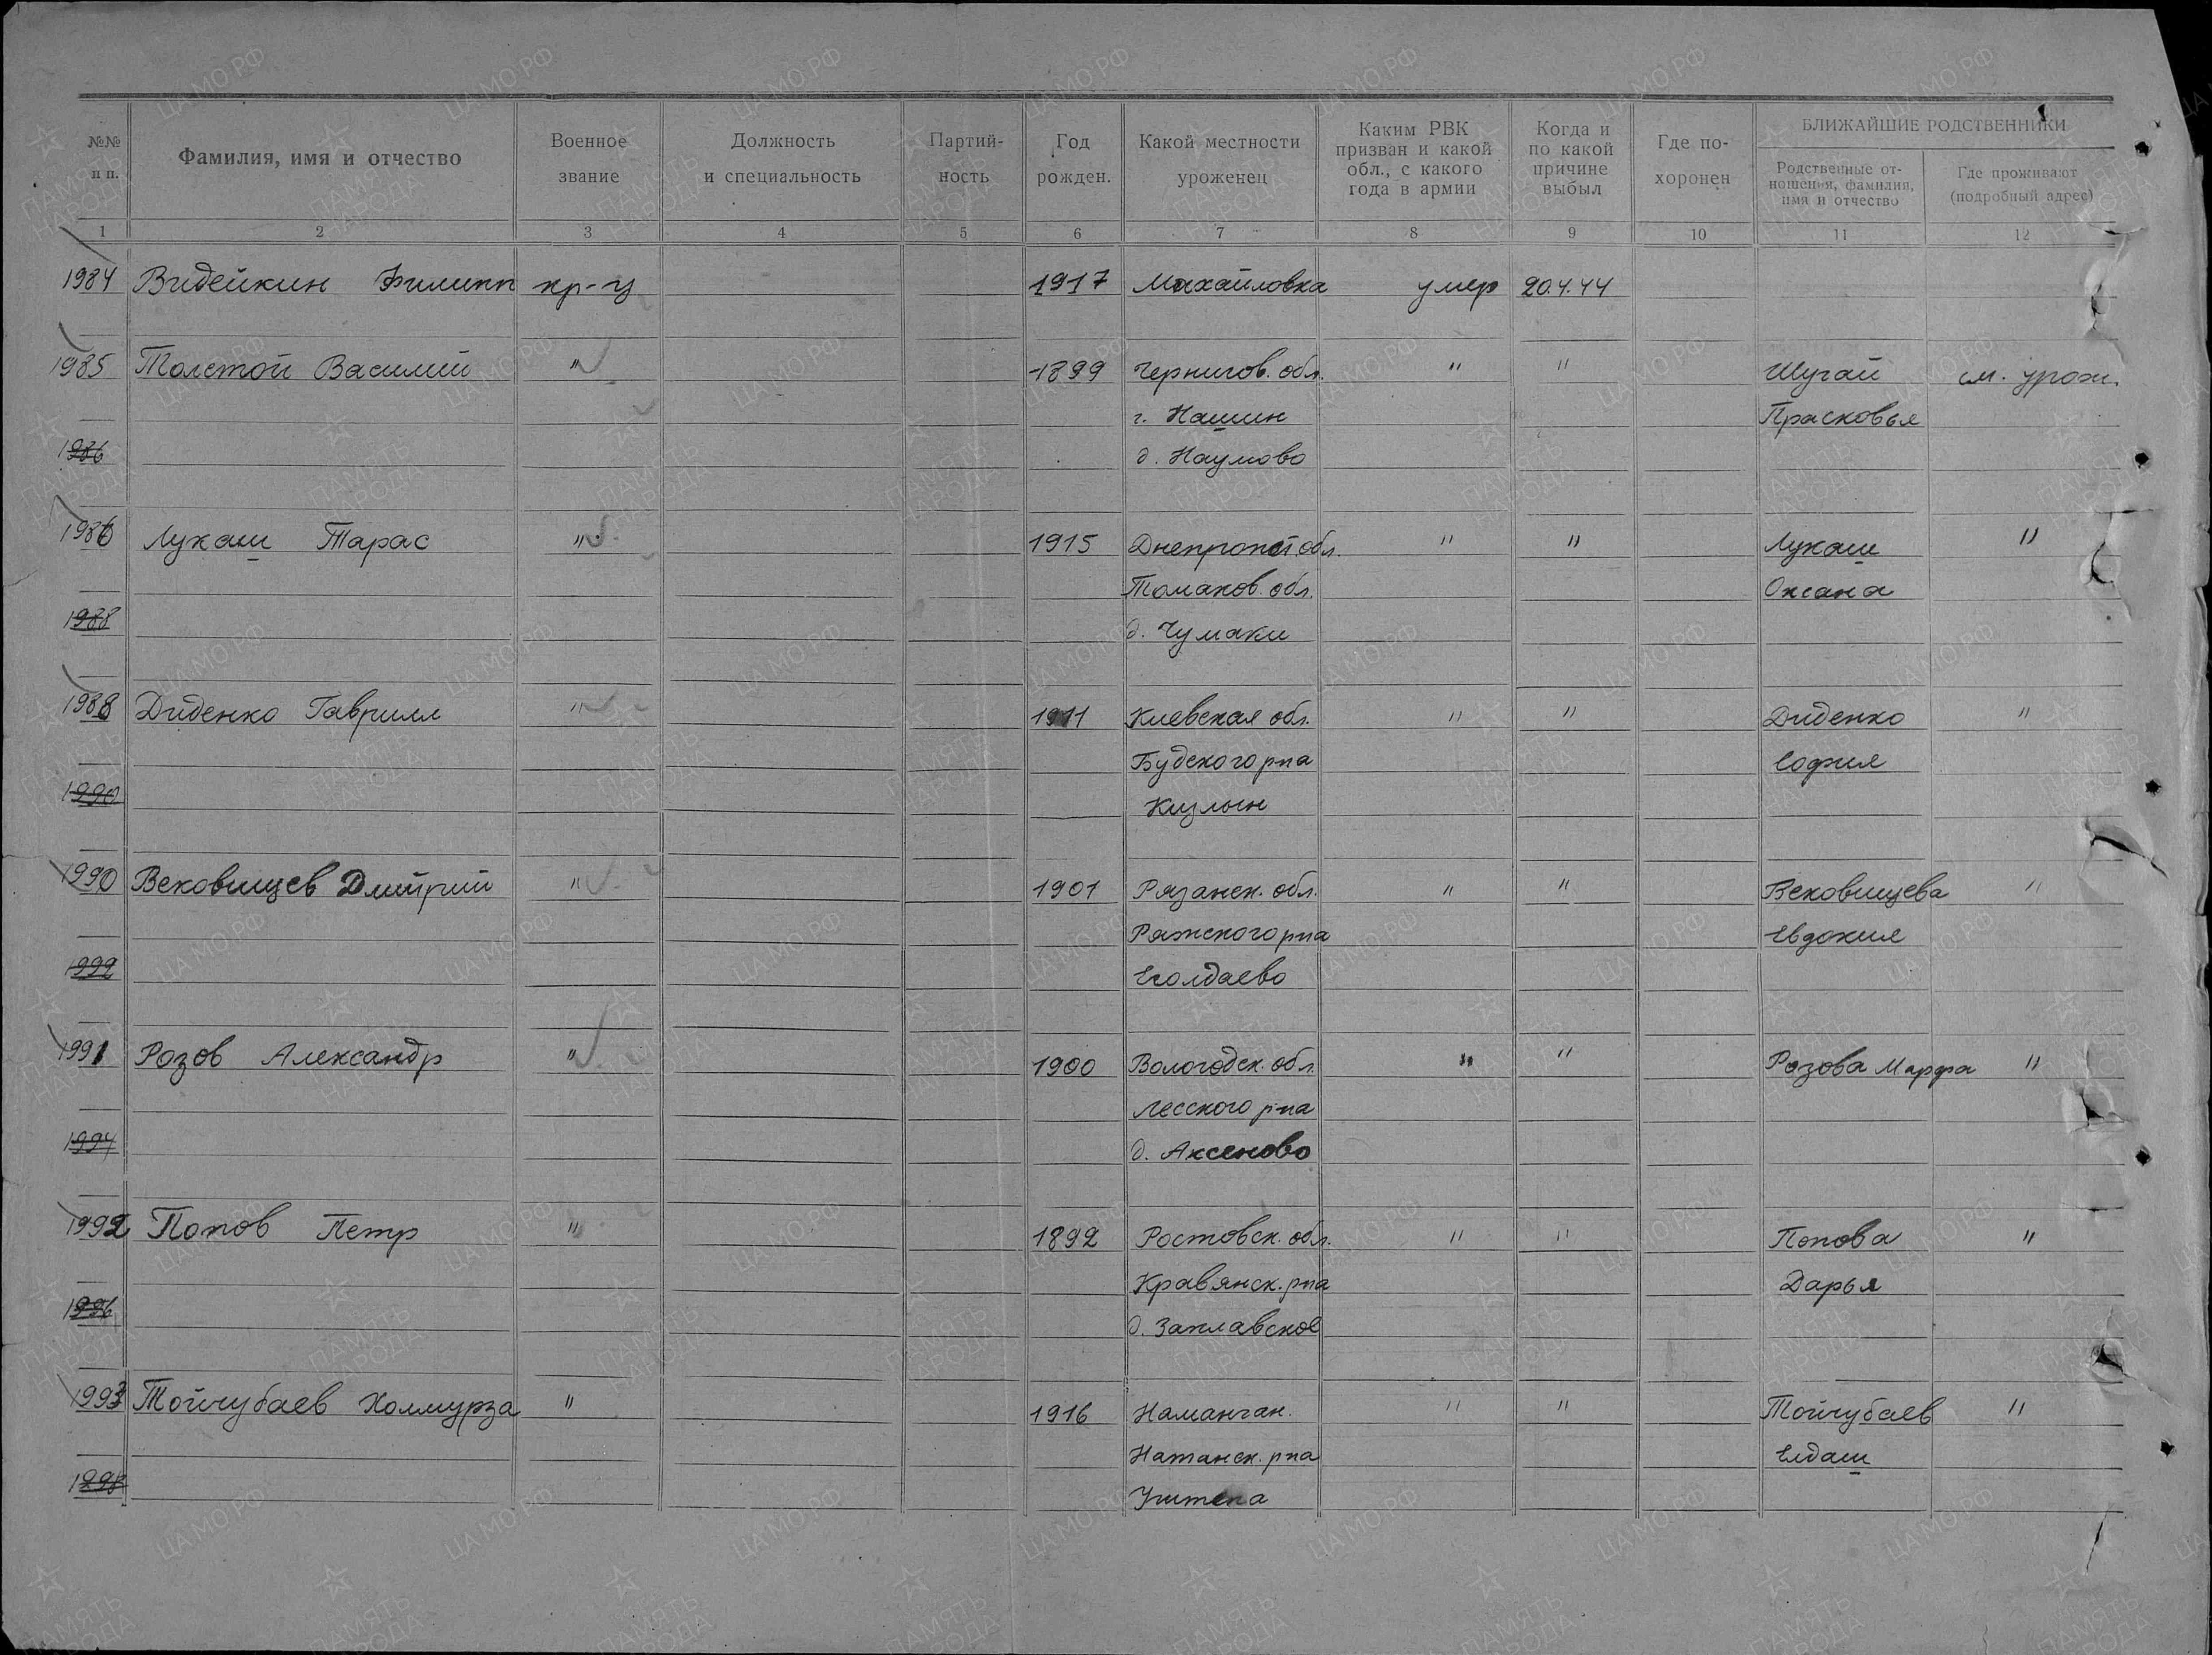 №№ п п.
Фамилия, имя и отчество
Военное звание
Должность и специальность
Партий-ность
Год рожден.
Какой местности уроженец
Каким РВК призван и какой обл., с какого года в армии
Когда и по какой причине выбыл
Где по-хоронен
БЛИЖАЙШИЕ РОДСТВЕННИКИ
Родственные от-ношения, фамилия, имя и отчество
Где проживают (подробный адрес)
1 2 3 4 5 6 7 8 9 10 11 12
1984 Видейкин Филипп кр-ц 1917 Михайловка умер 20.4.44
1985 Толстой Василий " 1899 Чернигов. обл. " " Шугай см. урож.
г. Нашин Прасковья
1986 д. Наумово
1986 Лукаш Тарас " 1915 Днепропет. обл. " " Лукаш "
Томаков. обл. Оксана
1988 д. Чумаки
1988 Диденко Гаврилл " 1911 Киевская обл. " " Диденко "
Будского рна София
1990 Кизлын
1990 Вековищев Дмитрий " 1901 Рязанск. обл. " " Вековищева "
Ряжского рна Евдокия
1992 Еголдаево
1991 Розов Александр " 1900 Вологодск. обл. " " Розова Марфа "
Лесского рна
1994 д. Аксеново
1992 Попов Петр " 1892 Ростовск. обл. " " Попова "
Кравянск. рна Дарья
1996 д. Заплавское
1993 Тойчубаев Холмурза " 1916 Наманган. " " Тойчубаев "
Натанск. рна Елдаш
1998 Уштепа
ЦАМО.РФ
ПАМЯТЬ НАРОДА